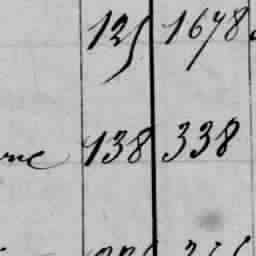 125 1678
ne 138 338